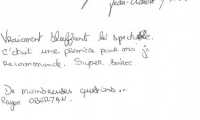 Vraiment bluffant le spectacle.
C'était une première pour moi je
recommande. Super soirée.
De nombreuses questions...
Rayan